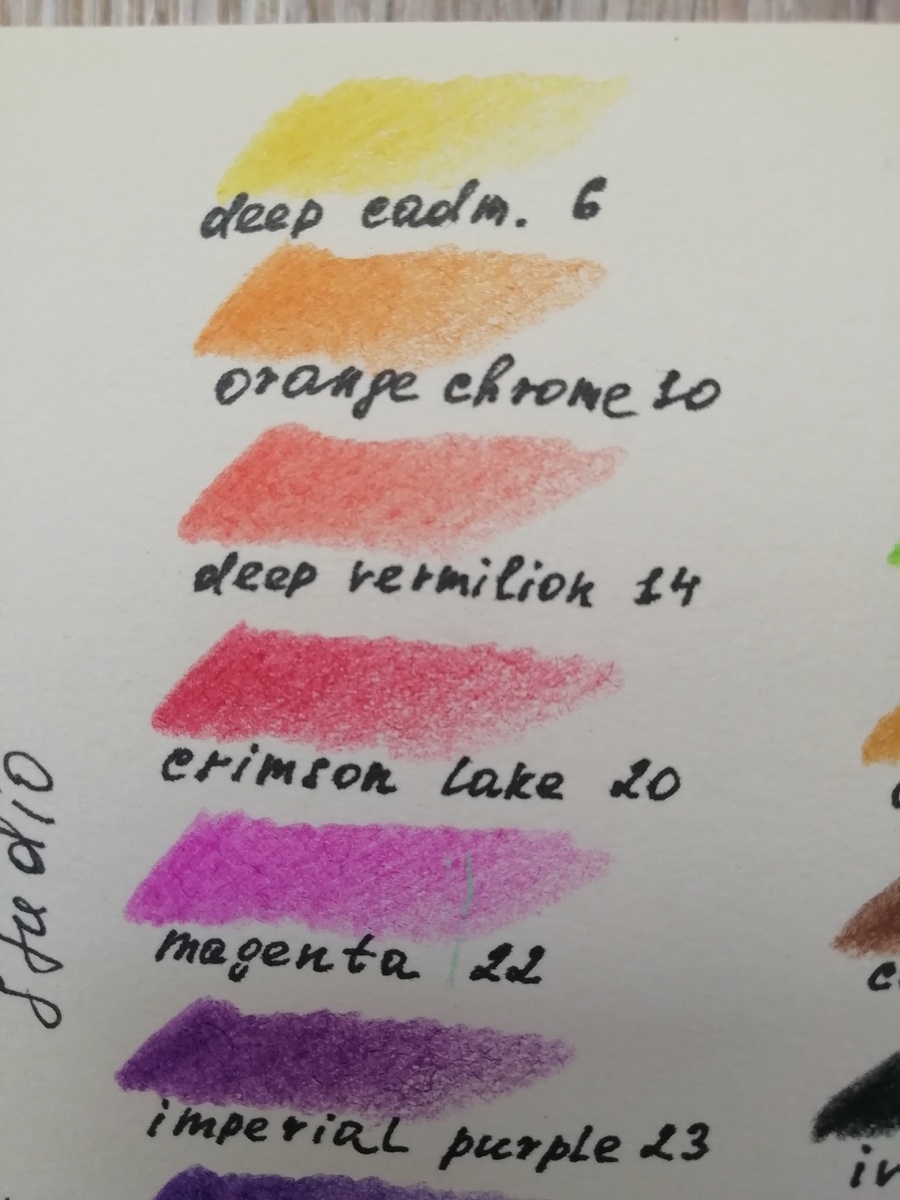 deep cadm. 6
orange chrome 10
deep vermilion 14
crimson lake 20
magenta 22
imperial purple 23
Studio